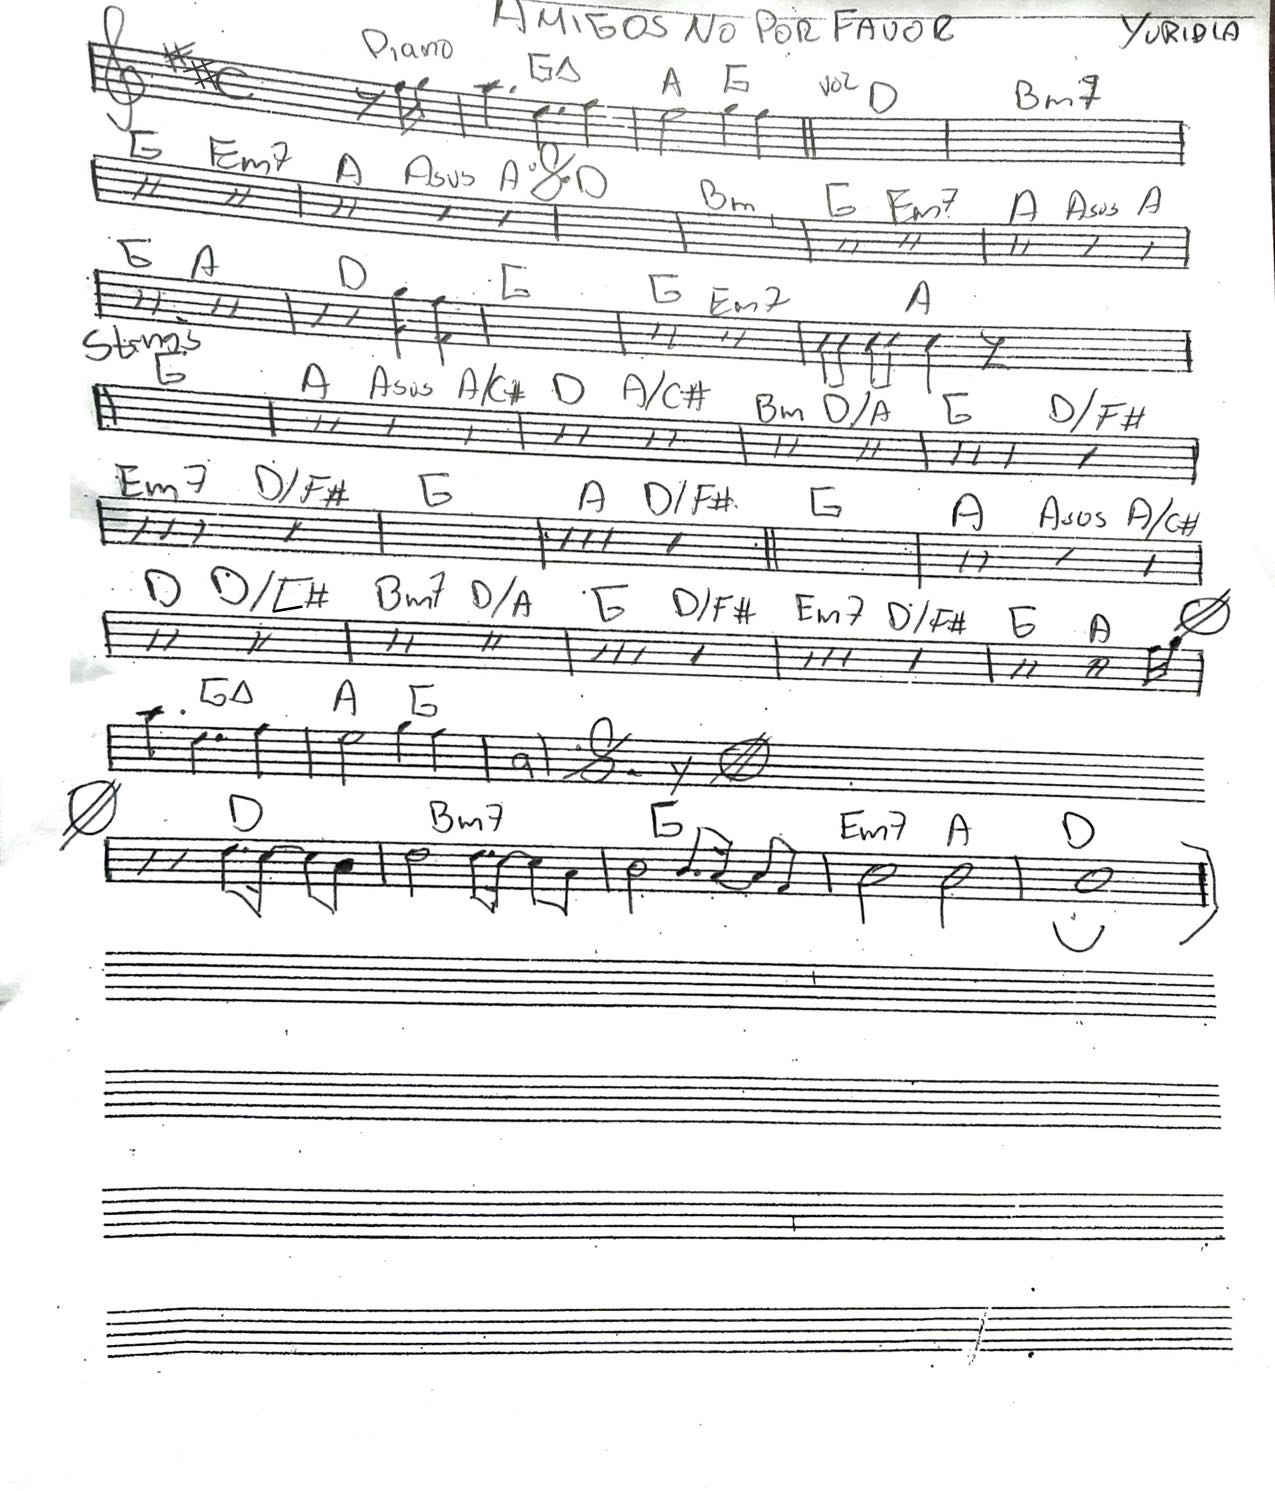 AMIGOS NO POR FAVOR YURIDIA
Piano GΔ A G voz D Bm7
G Em7 A Asus A D Bm G Em7 A Asus A
G A D G G Em7 A
Strings
G A Asus A/C# D A/C# Bm D/A G D/F#
Em7 D/F# G A D/F# G A Asus A/C#
D D/C# Bm7 D/A G D/F# Em7 D/F# G A
GΔ A G
y
D Bm7 G Em7 A D